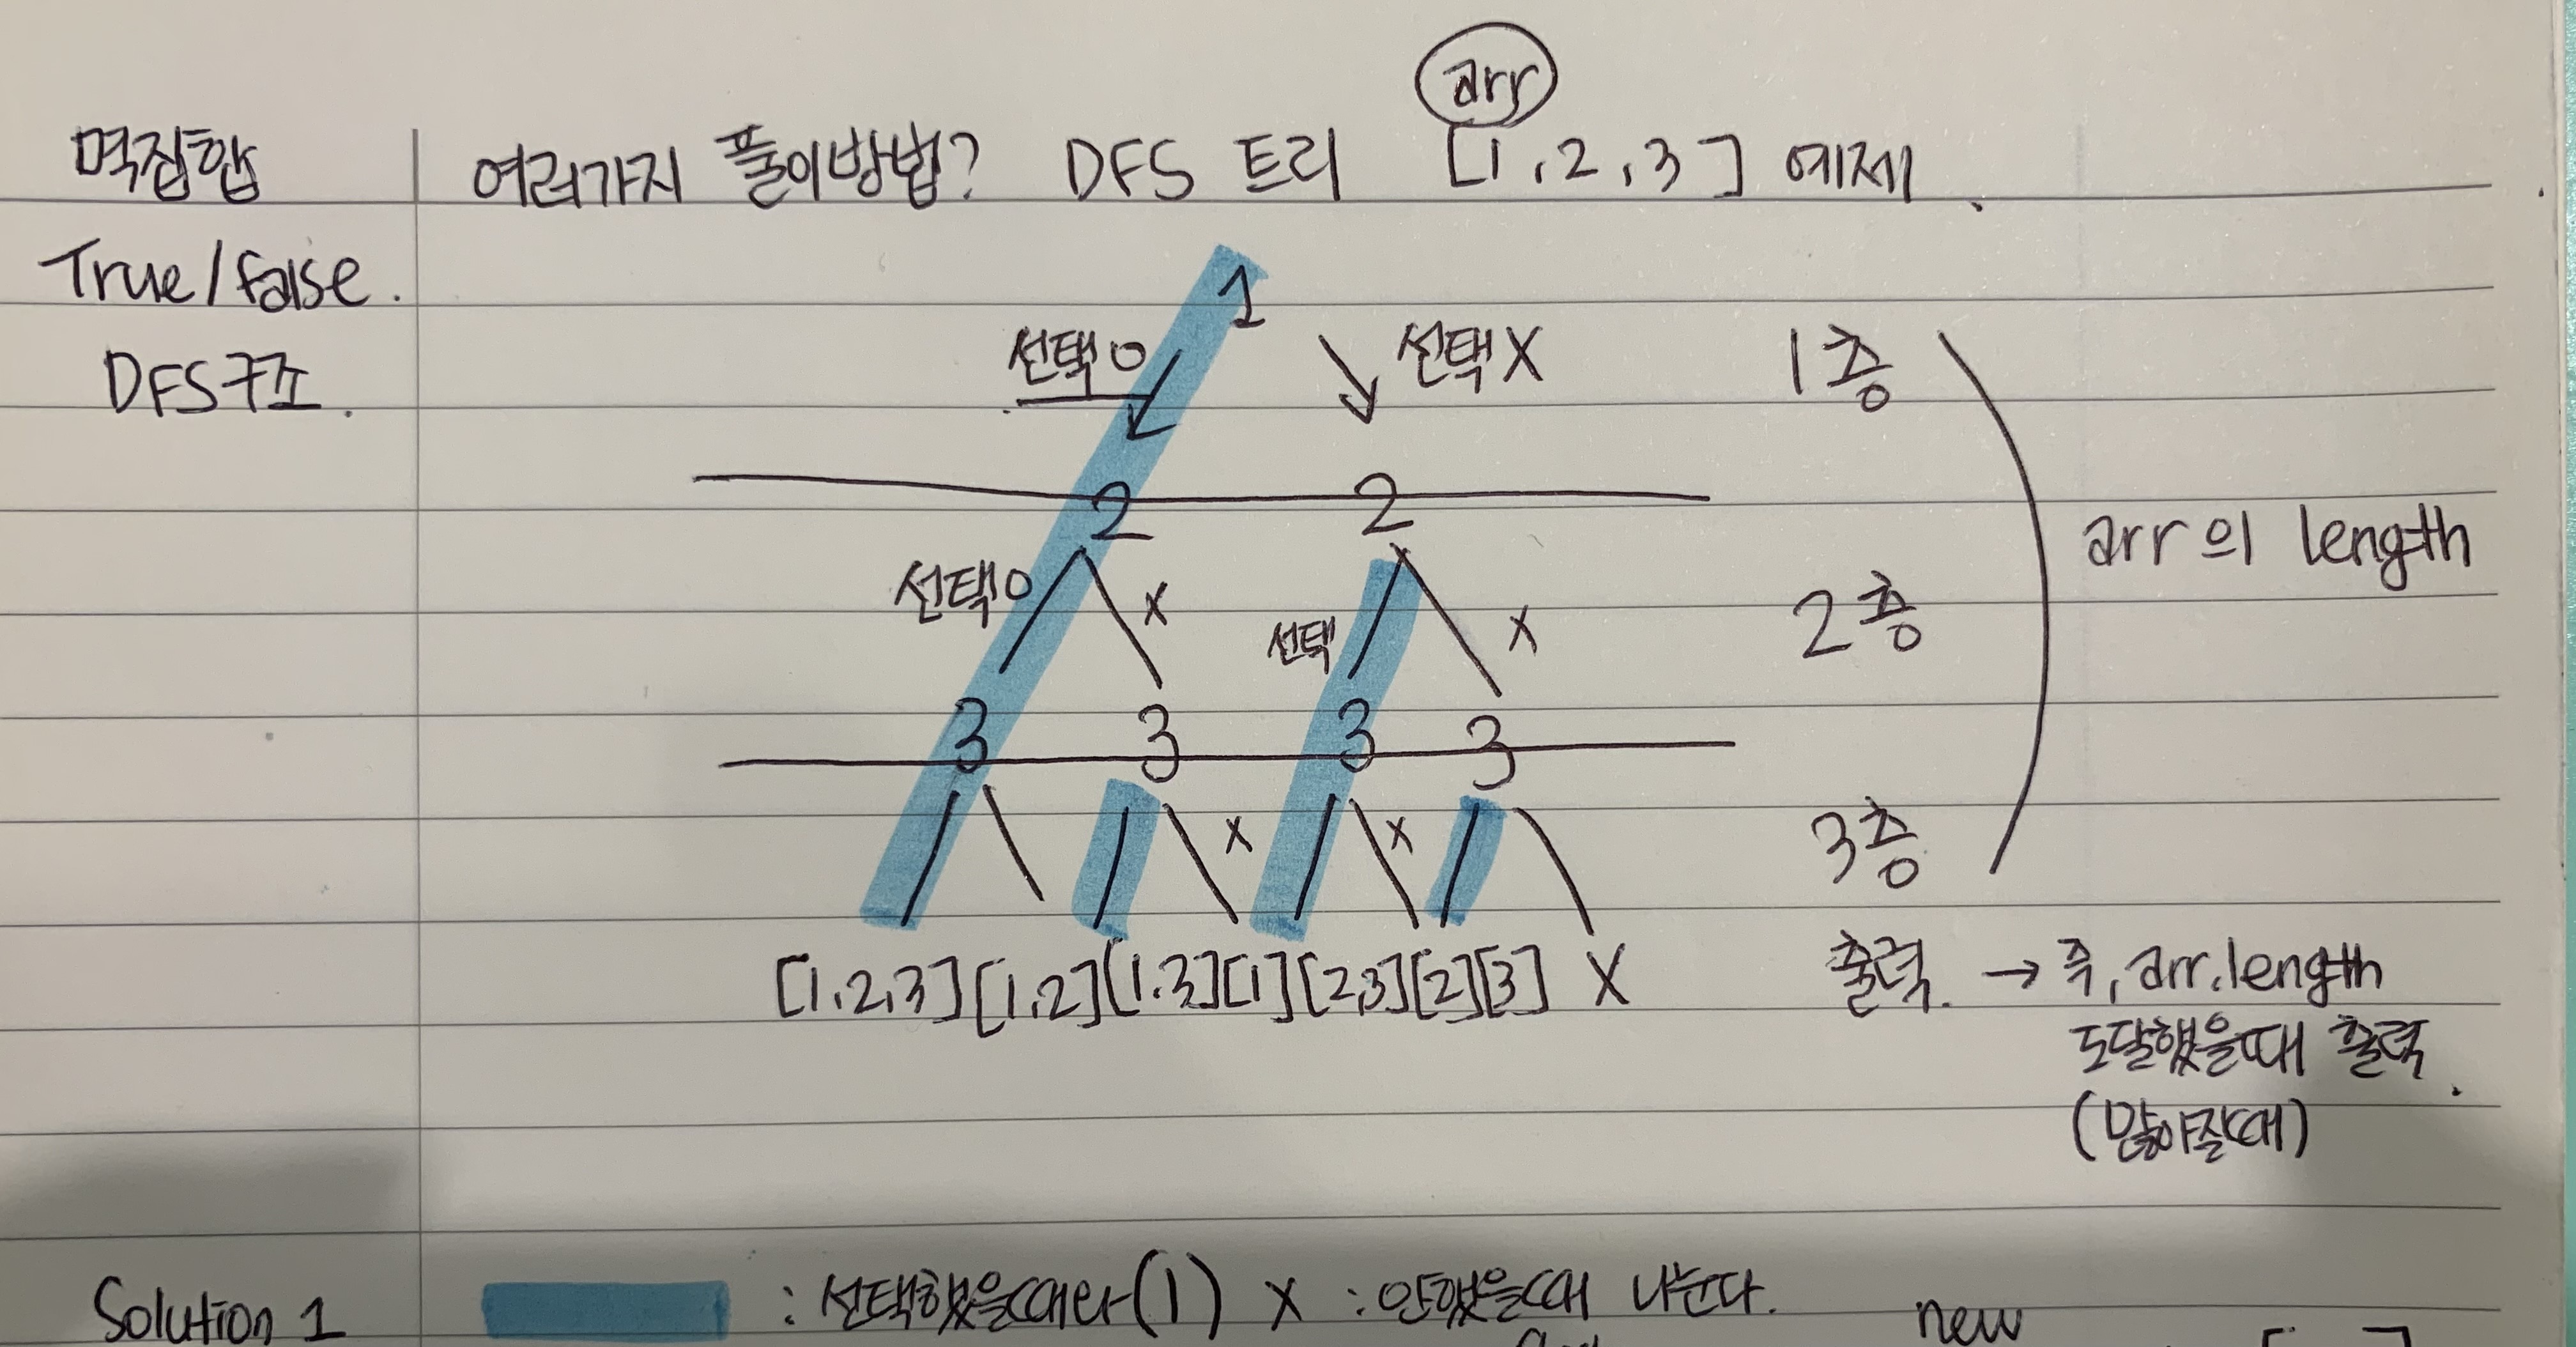 arr
멱집합 여러가지 풀이방법? DFS 트리 [1,2,3] 예제.
True/false.
DFS구조.
1
선택O 선택X 1층
2 2
arr의 length
선택O X 선택 X 2층
3 3 3 3
X X 3층
[1,2,3][1,2][1,3][1][2,3][2][3] X 출력. → 즉, arr.length
도달했을때 출력.
(많아질때)
Solution 1 : 선택했을때라(1) X : 안했을때 나눈다.
new